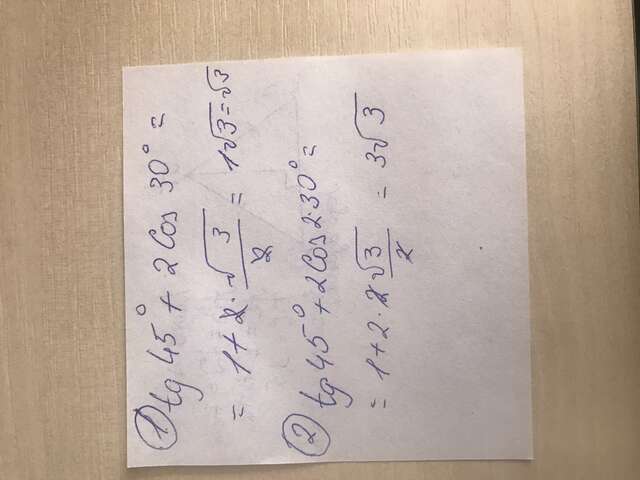 1) tg 45° + 2 Cos 30° =
= 1 + 2 · √3/2 = 1√3 = √3
2) tg 45° + 2 Cos 2·30° =
= 1 + 2 · 2√3/2 = 3√3